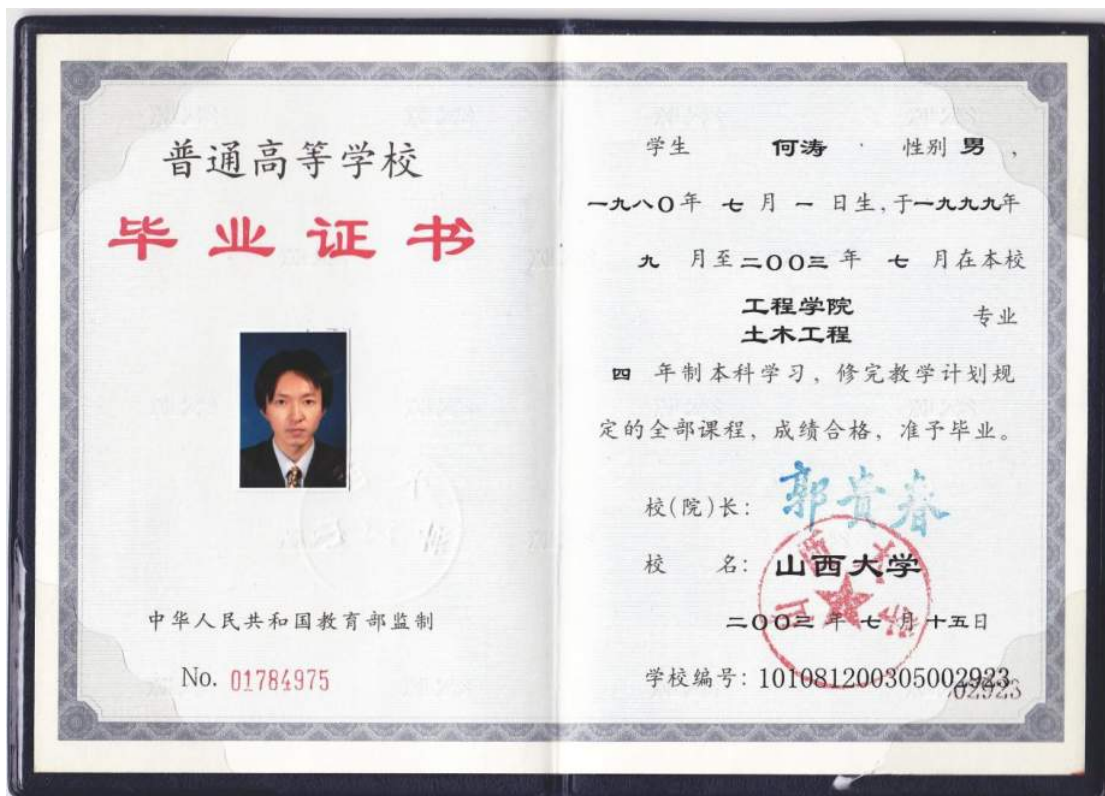 普通高等学校
毕业证书
中华人民共和国教育部监制
No. 01784975
学生 何涛 性别 男,
一九八〇年 七 月 一 日生,于一九九九年
九 月至二〇〇三 年 七 月在本校
工程学院
土木工程 专业
四 年制本科学习, 修完教学计划规
定的全部课程, 成绩合格, 准予毕业。
校(院)长: 郭贵春
校 名: 山西大学
二〇〇三 年 七 月 十五日
学校编号: 101081200305002923
02923